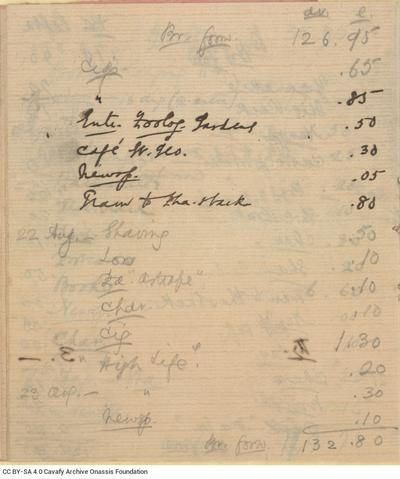 dr. c.
Bro. forw. 126.95
Cig .65
" .85
Entr. Zoolog. Gardens .50
Café St. Geo. .30
Newsp. .05
Tram to & back .80
22 Aug. – Shaving .50
Loo .10
"Astrape" .10
Char. .10
Cig 1.30
"High Life". .20
23 Aug. – " .30
Newsp. .10
Bro. forw. 132.80
CC BY-SA 4.0 Cavafy Archive Onassis Foundation